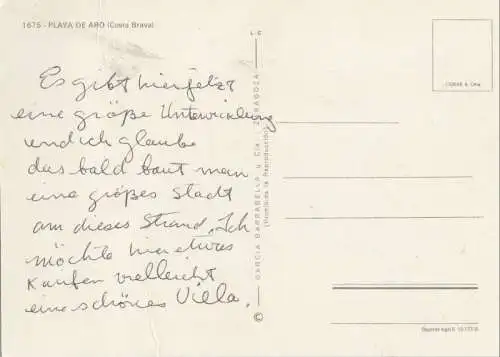 1675 - PLAYA DE ARO (Costa Brava)
L-C
Es gibt hier jetzt
eine große Untewicklung
und ich glaube
das bald baut man
eine großes Stadt
am dieses Strand. Ich
möchte hier etwas
Kaufen vielleicht
eine schönes Villa.
© GARCIA GARRABELLA y Cía. ZARAGOZA
(Prohibida la Reproducción)